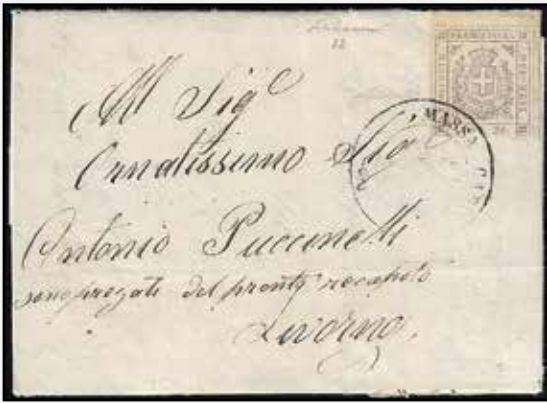 12
All Sig.e
Ornatissimo Sig.e
Antonio Puccinelli
sono pregati del pronto recapito
Livorno.
MASSA